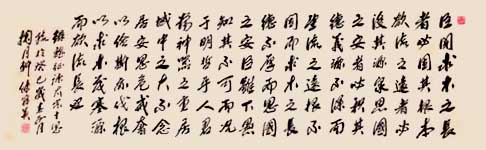 臣聞求木之長
者必固其根本
欲流之遠者必
浚其泉源思國
之安者必積其
德義源不深而
望流之遠根不
固而求木之長
德不厚而思國
之安臣雖下愚
知其不可而況
于明哲乎人君
當神器之重居
域中之大不念
居安思危戒奢
以儉斯亦伐根
以求木茂塞源
而欲流長也
魏徵諫太宗十思
疏於癸巳歲春月